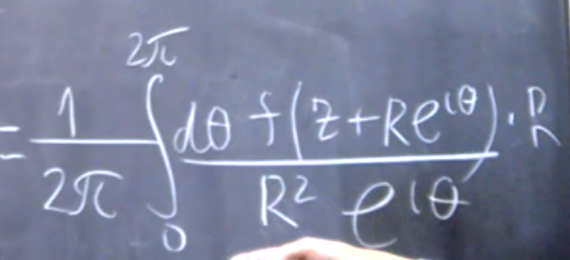 = \frac{1}{2\pi} \int_0^{2\pi} \frac{d\theta f(z+Re^{i\theta}) \cdot R}{R^2 e^{i\theta}}